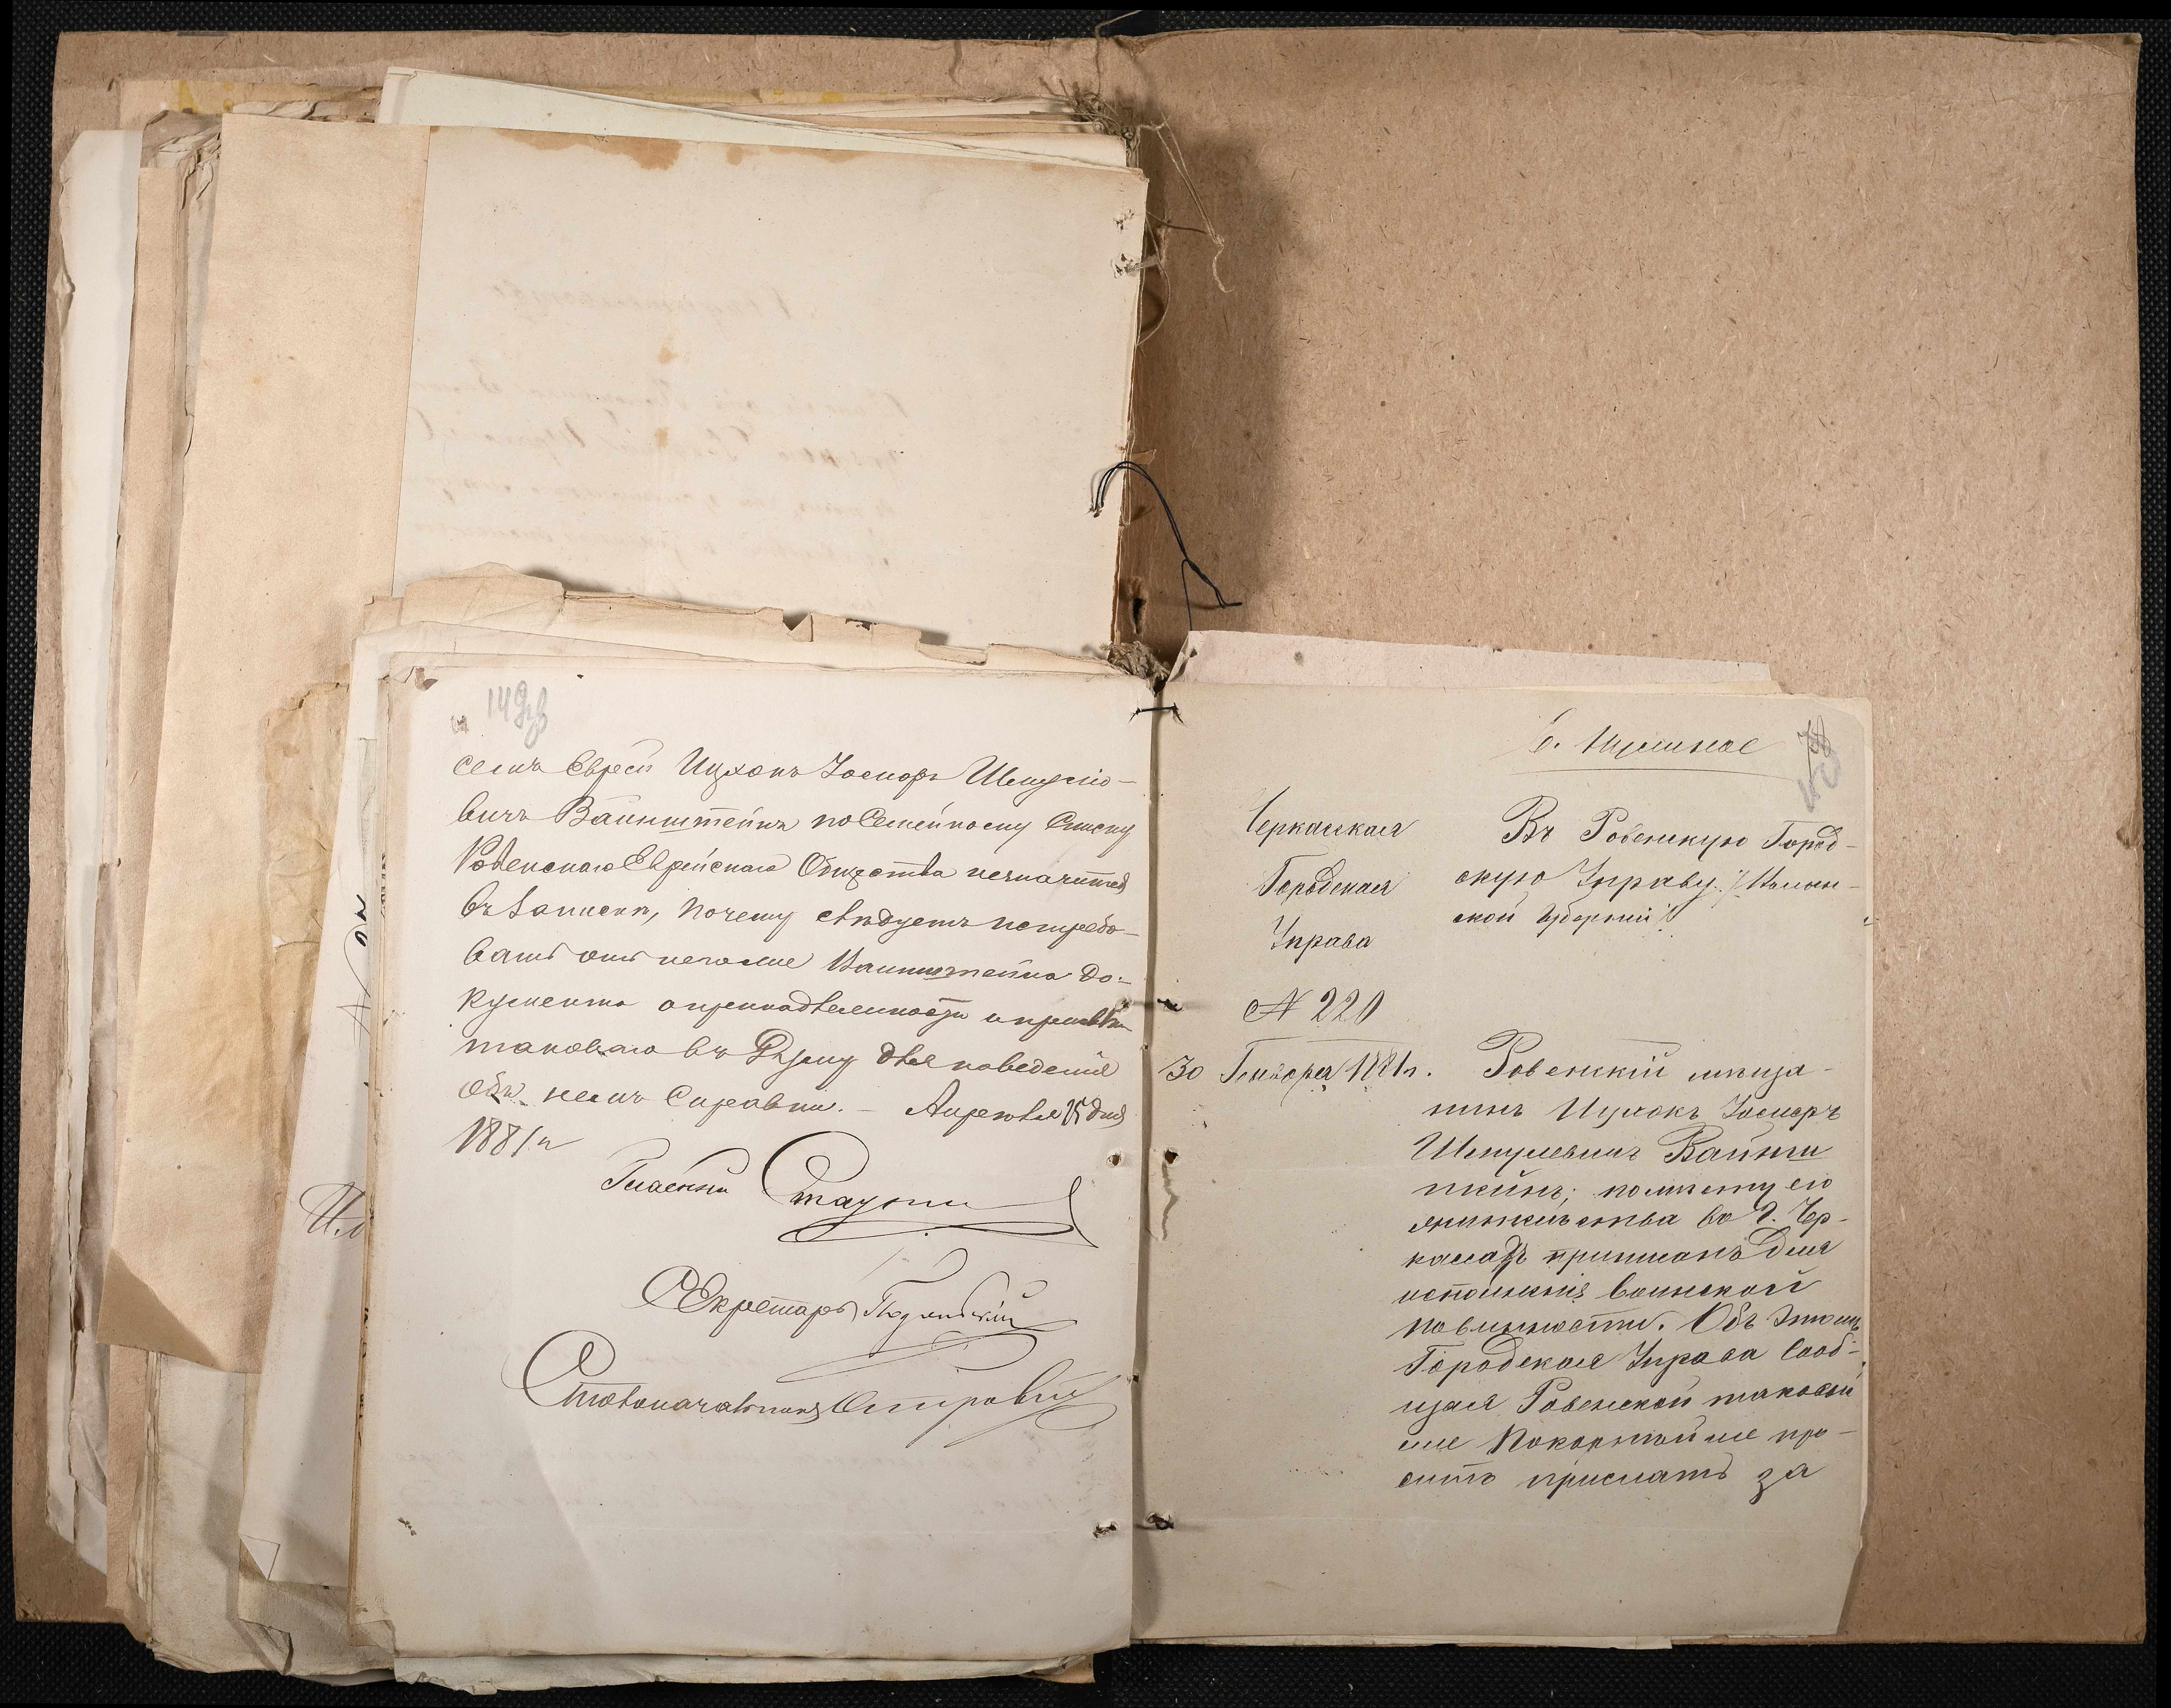 149 об
семъ Еврей Ицхокъ Іосифъ Шмуліо-
вичъ Ванштейнъ по Семейному Списку
Ровенскаго Еврейскаго Общества незначится
въ записи, почему слѣдуетъ истребо-
вать отъ него же Ванштейна до-
кумента о принадлежности и
таковаго въ Думу для наведенія
объ немъ Справки. – Апрѣля 15 дня
1881 г
Гласный
Секретарь
Столоначальникъ
Черкасская
Городская
Управа
№ 220
30 Генваря 1881 г.
Въ Ровенскую Город-
скую Управу /: Волын-
ской Губерніи :/
Ровенскій мѣща-
нинъ Ицхокъ Іосифъ
Шмулевичъ Вайнш
тейнъ; по мѣсту его
жительства въ г. Чер-
касахъ приписанъ для
исполненія воинской
повинности. Объ этомъ
Городская Управа сооб-
щая Ровенской таковой
же покорнѣйше про-
ситъ прислать за